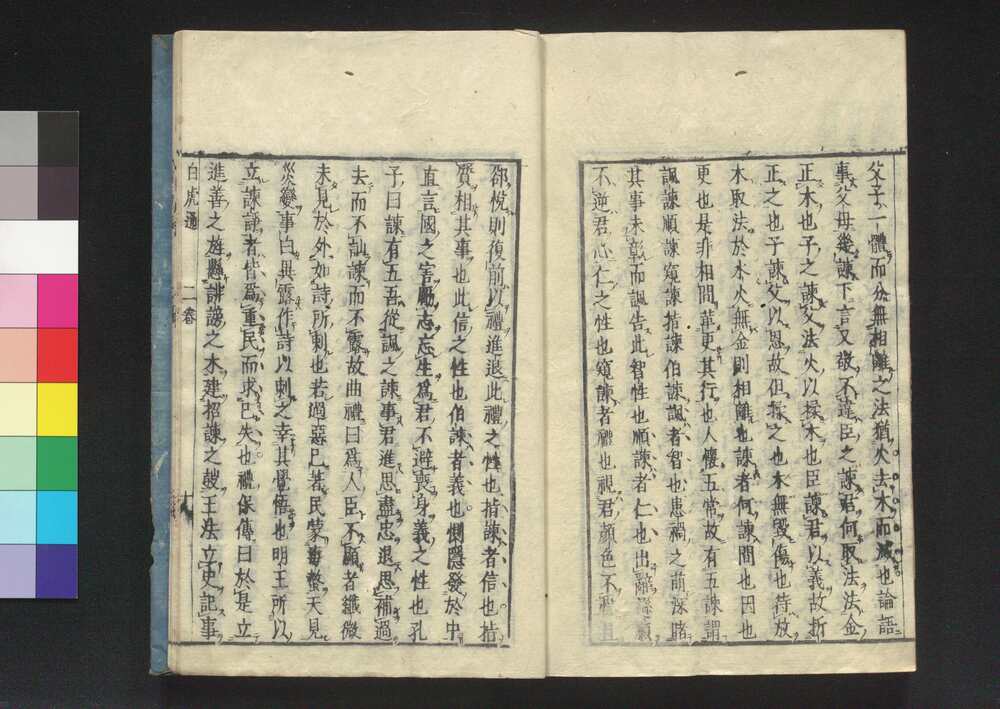 父子一體而分無相離之法猶火去木而滅也論語
事父母幾諫下言又敬不違臣之諫君何取法法金
正木也子之諫父法火以揉木也臣諫君以義故折
正之也子諫父以恩故但揉之也木無毀傷也待放
木取法於水火無金則相離也諫者何諫間也因也
更也是非相間革更其行也人懷五常故有五諫謂
諷諫順諫窺諫指諫伯諫諷者智也患禍之萌深睹
其事未彰而諷告此智性也順諫者仁也出辭遜順
不逆君心仁之性也窺諫者禮也視君顏色不悅且
郤悅則復前以禮進退此禮之性也指諫者信也指
質相其事也此信之性也伯諫者義也惻隱發於中
直言國之害勵志忘生爲君不避喪身義之性也孔
子曰諫有五吾從諷之諫事君進思盡忠退思補過
去而不訕諫而不露故曲禮曰爲人臣不顯者纖微
未見於外如詩所刺也若過惡已著民蒙毒螫天見
災變事白異露作詩以刺之幸其覺悟也明王所以
立諫諍者皆爲重民而求已失也禮保傳曰於是立
進善之旌懸誹謗之木建招諫之鼓王法立史記事
白虎通 二卷